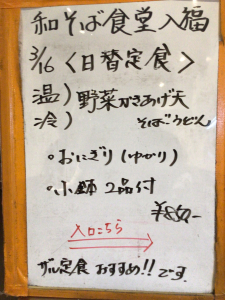 和そば食堂入福
3/16 〈日替定食〉
温) 野菜かきあげ天
冷) そばうどん
・おにぎり(ゆかり)
・小鉢 2品付
¥850-
入口こちら
ザル定食 おすすめ!!です。